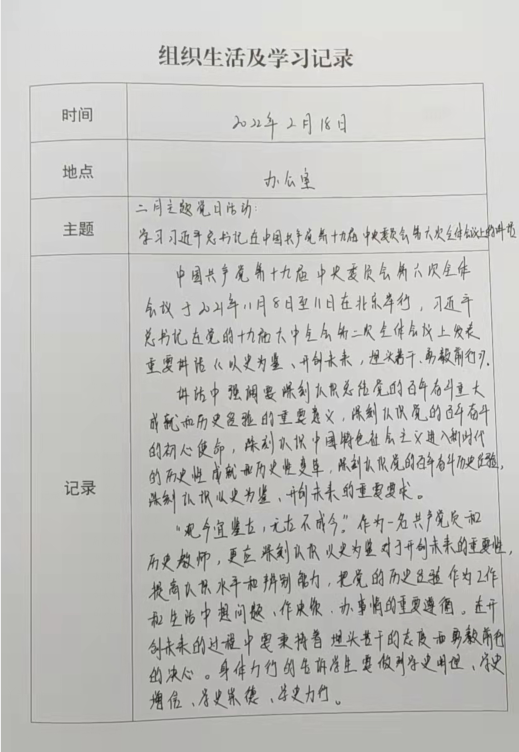 组织生活及学习记录
时间
2022年2月18日
地点
办公室
主题
二月主题党日活动:
学习习近平总书记在中国共产党第十九届中央委员会第六次全体会议上的讲话
记录
中国共产党第十九届中央委员会第六次全体
会议于2021年11月8日至11日在北京举行,习近平
总书记在党的十九届六中全会第二次全体会议上发表
重要讲话《以史为鉴、开创未来,埋头苦干、勇毅前行》.
讲话中强调要深刻认识总结党的百年奋斗重大
成就和历史经验的重要意义,深刻认识党的百年奋斗
的初心使命,深刻认识中国特色社会主义进入新时代
的历史性成就和历史性变革,深刻认识党的百年奋斗历史经验,
深刻认识以史为鉴、开创未来的重要要求。
“观今宜鉴古,无古不成今。”作为一名共产党员和
历史教师,更应深刻认识以史为鉴对于开创未来的重要性,
提高认识水平和辨别能力,把党的历史经验作为工作
和生活中想问题、作决策、办事情的重要遵循。在开
创未来的过程中要秉持着埋头苦干的态度和勇毅前行
的决心。身体力行的告诉学生要做到学史明理、学史
增信、学史崇德、学史力行。